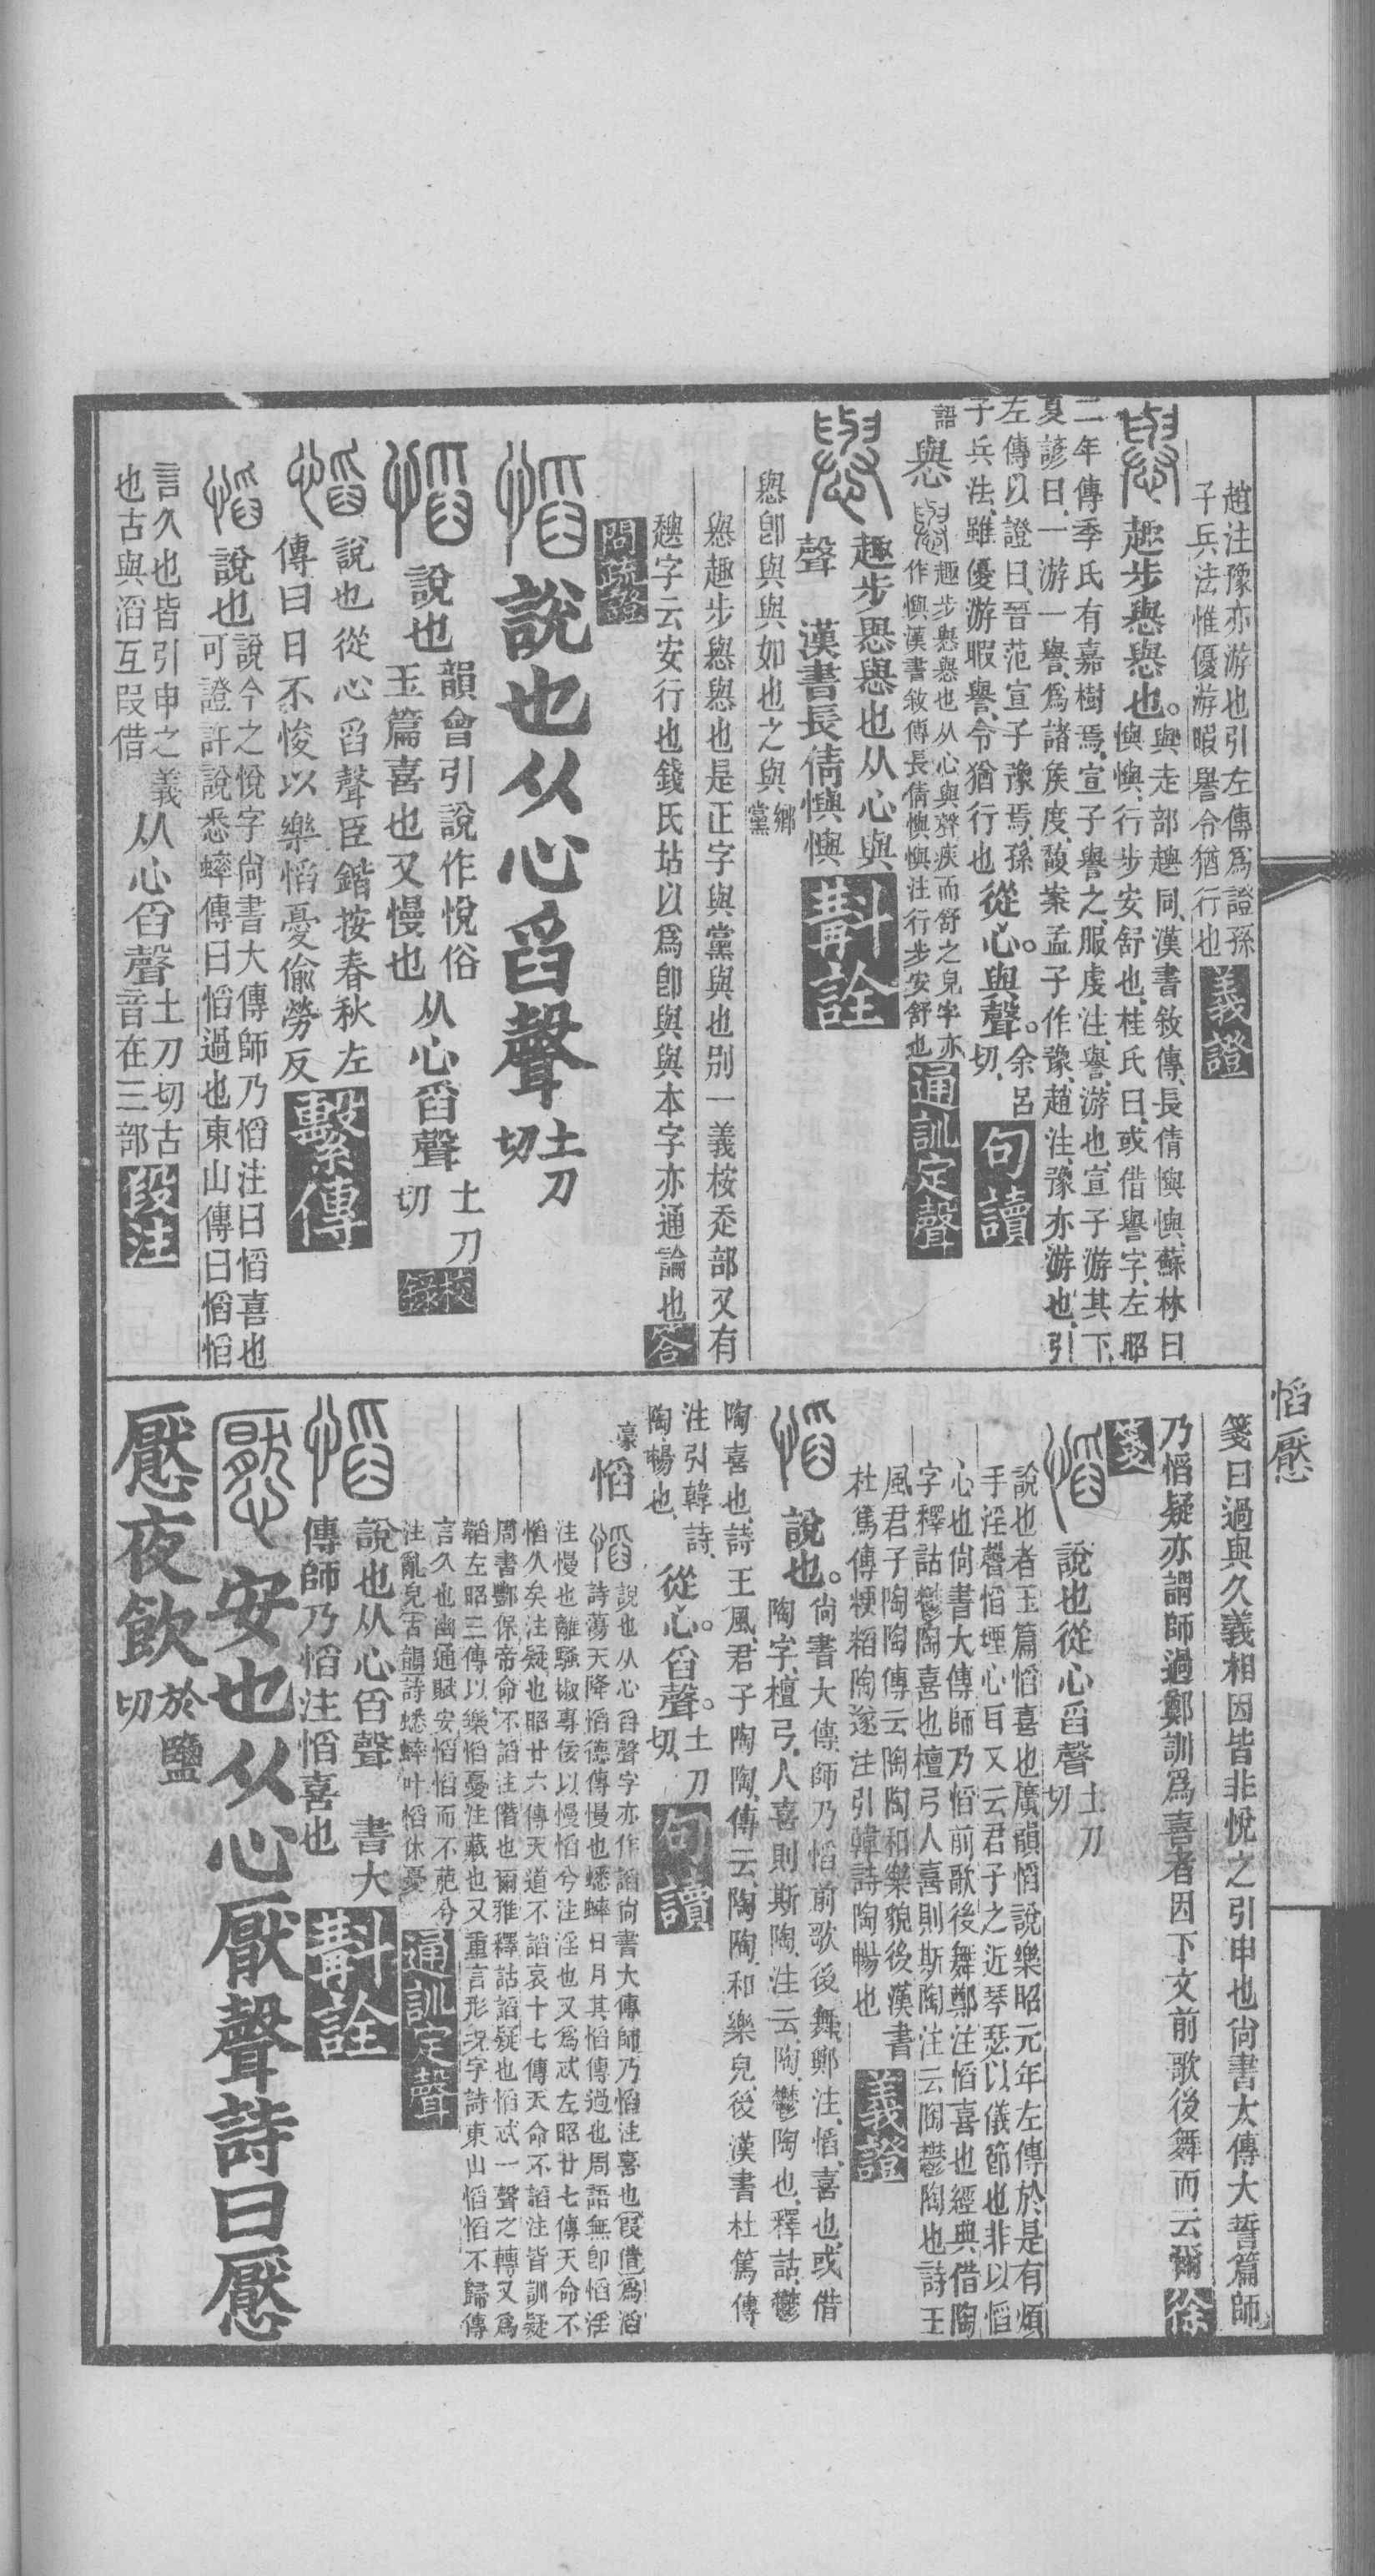 趙注豫亦游也引左傳爲證孫
子兵法惟優游暇譽令猶行也
義證
趣步懙懙也。
與走部趣同漢書敘傳長倩懙懙蘇林曰
懙懙行步安舒也桂氏曰或借譽字左昭
二年傳季氏有嘉樹焉宣子譽之服虔注譽游也宣子游其下
夏諺曰一游一譽爲諸矦度馥案孟子作豫趙注豫亦游也引
左傳以證曰晉范宣子豫焉孫
子兵法雖優游暇譽令猶行也
從心。與聲。
余呂
切
句讀
語
懙
趣步懙懙也从心與聲疾而舒之皃字亦
作懙漢書敘傳長倩懙懙注行步安舒也
通訓定聲
趣步懙懙也从心與
聲 漢書長倩懙懙
斠詮
懙卽與與如也之與
鄉
黨
懙趣步懙懙也是正字與黨與也别一義桉走部又有
趣字云安行也錢氏坫以爲卽與與本字亦通論也
答
問疏證
說也从心舀聲
土刀
切
說也
韻會引說作悅俗
玉篇喜也又慢也
从心舀聲
土刀
切
校
錄
說也從心舀聲臣鍇按春秋左
傳曰日不悛以樂慆憂偷勞反
繫傳
說也
說今之悅字尚書大傳師乃慆注曰慆喜也
可證許說悉蟀傳曰慆過也東山傳曰慆慆
言久也皆引申之義
也古與滔互叚借
从心舀聲
土刀切古
音在三部
段注
慆懕
箋曰過與久義相因皆非悅之引申也尚書大傳大誓篇師
乃慆疑亦謂師過鄭訓爲喜者因下文前歌後舞而云爾
徐
箋
說也從心舀聲
土刀
切
說也者玉篇慆喜也廣韻慆說樂昭元年左傳於是有煩
手淫聲慆堙心耳又云君子之近琴瑟以儀節也非以慆
心也尚書大傳師乃慆前歌後舞鄭注慆喜也經典借陶
字釋詁鬱陶喜也檀弓人喜則斯陶注云陶鬱陶也詩王
風君子陶陶傳云陶陶和樂貌後漢書
杜篤傳粳稻陶遂注引韓詩陶暢也
義證
說也。
尚書大傳師乃慆前歌後舞鄭注慆喜也或借
陶字檀弓人喜則斯陶注云陶鬱陶也釋詁鬱
陶喜也詩王風君子陶陶傳云陶陶和樂皃後漢書杜篤傳
注引韓詩
陶暢也
從心。舀聲。
土刀
切
句讀
豪
慆
說也从心舀聲字亦作謟尚書大傳師乃慆注喜也叚借爲滔
詩蕩天降慆德傳慢也蟋蟀日月其慆傳過也周語無卽慆淫
注慢也離騷椒專佞以慢慆兮注淫也又爲忒左昭廿七傳天命不
慆久矣注疑也昭廿六傳天道不謟哀十七傳天命不謟注皆訓疑
周書酆保帝命不謟注僭也爾雅釋詁謟疑也慆忒一聲之轉又爲
韜左昭三傳以樂慆憂注藏也又重言形況字詩東山慆慆不歸傳
言久也幽通賦安慆慆而不萉兮
注亂皃古韻詩蟋蟀叶慆休憂
通訓定聲
說也从心舀聲 書大
傳師乃慆注慆喜也
斠詮
安也从心厭聲詩曰懕
懕夜飲
於鹽
切